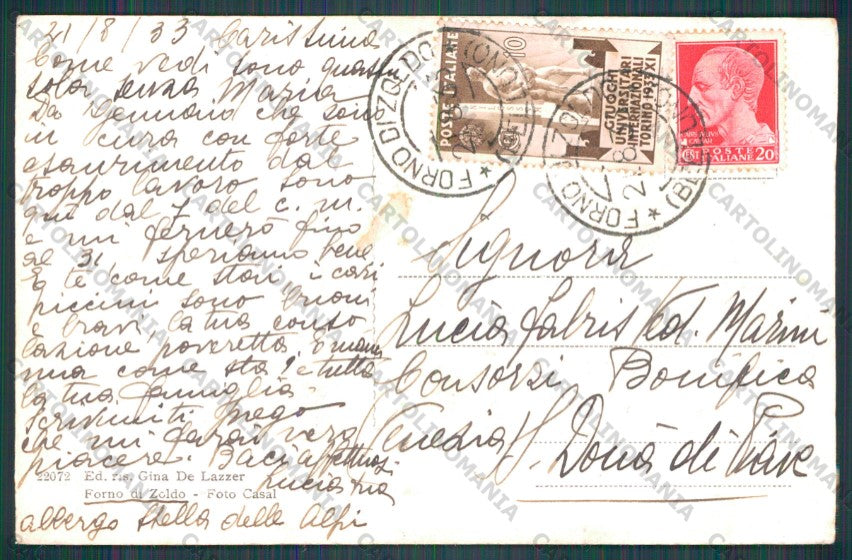 21/8/33 Carissima
Come vedi sono quassù
sola senza Maria
Da Gennaio che sono
in cura con forte
esaurimento dal
troppo lavoro sono
qui dal 7 del c. m.
e mi fermerò fino
al 31 speriamo bene
E te come stai, i cari
piccini sono buoni
e bravi, la tua conso
lazione, poveretta,
come sta? e tutta
la tua famiglia
scrivimiti prego
che mi farai vero
piacere. Baci affettuosi
Lucia tua
22072 Ed. ris. Gina De Lazzer
Forno di Zoldo - Foto Casal
albergo stella delle Alpi
POSTE ITALIANE
10
GIUOCHI
UNIVERSITARI
INTERNAZIONALI
TORINO 1933 XI
CENT POSTE ITALIANE 20
FORNO DI ZOLDO
* FORNO DI ZOLDO *
Signora
Lucia Fabris Ved. Marini
Consorzi Bonifica
Venezia S. Donà di Piave
CARTOLINOMANIA